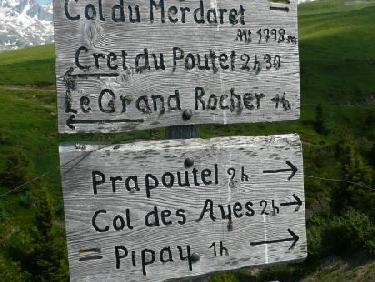 Col du Merdaret
Alt 1798m
Cret du Poutel 2h30
Le Grand Rocher 1h
Prapoutel 2h
Col des Ayes 2h
Pipay 1h